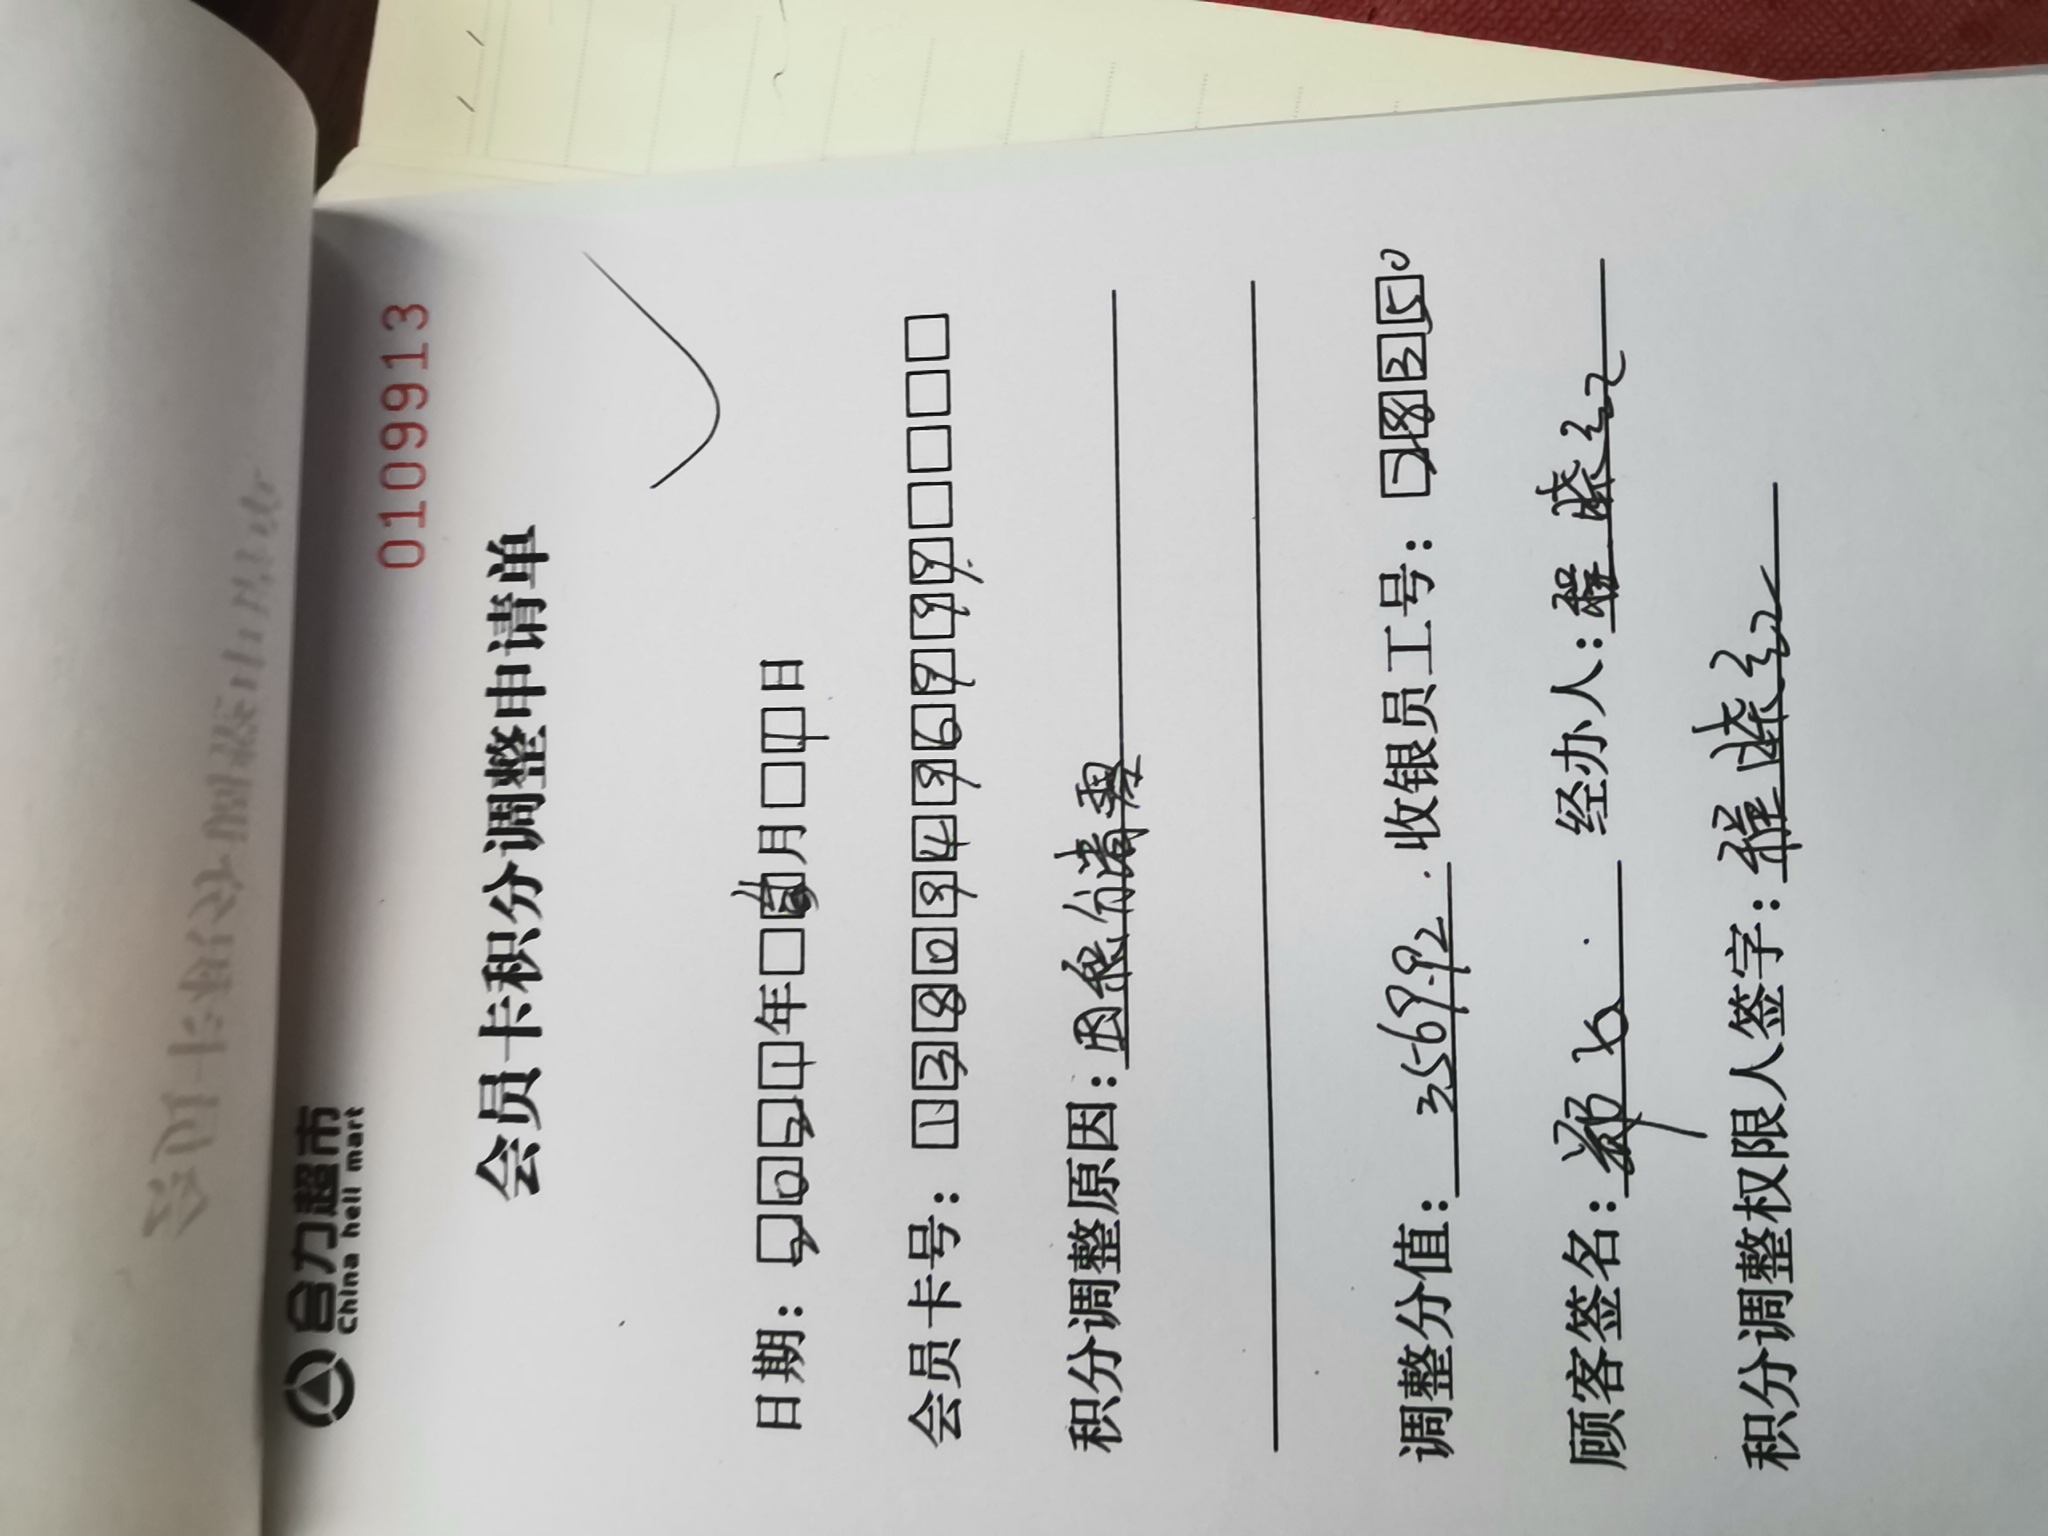 合力超市
China heli mart
0109913
会员卡积分调整申请单
日期：2021年 月 7日
会员卡号：13803439799
积分调整原因：因条份清零
调整分值：3569.92 收银员工号：78350
顾客签名：郑 经办人：程晓红
积分调整权限人签字：程晓红